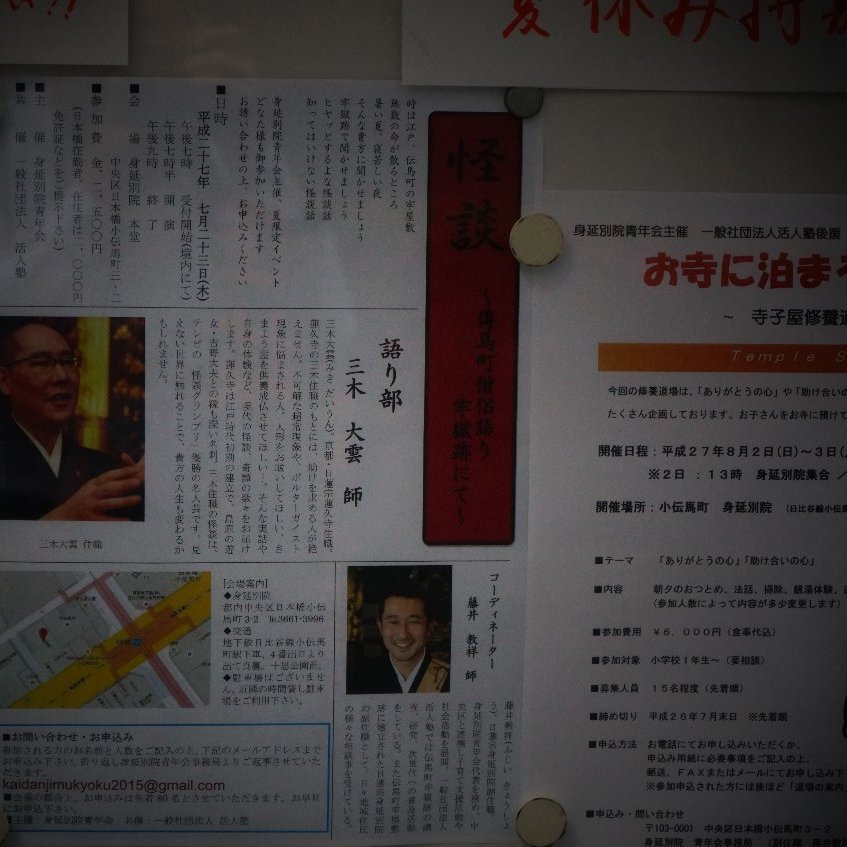 夏休み特
怪談
～傳馬町僧侶語り
牢獄跡にて～
時は江戸、伝馬町の牢屋敷
無数の命が散るところ
暑い夏、寝苦しい夜
そんな貴方に聞かせましょう
牢獄跡で聞かせましょう
ヒヤッとするよな怪談話
知ってはいけない怪談話
身延別院青年会主催、夏限定イベント
どなた様も御参加いただけます
お誘い合わせの上、お申込みください
■日時
平成二十七年 七月二十三日(木)
午後七時 受付開始(境内にて)
午後七時半 開 演
午後九時 終 了
■会 場 身延別院 本堂
中央区日本橋小伝馬町三‐二
■参加費 金、二、五〇〇円
(日本橋在勤者、在住者は二、〇〇〇円
免許証などをご提示下さい)
■主 催 身延別院青年会
■共 催 一般社団法人 活人塾
語り部
三木 大雲 師
三木大雲(みき だいうん)、京都・日蓮宗蓮久寺住職。
蓮久寺の三木住職のもとには、助けを求める人が絶
えません。不可解な超常現象や、ポルターガイスト
現象に悩まされる人、人形をお祓いしてほしい、さ
まよう霊を供養成仏させてほしい…そんな実話や
自身の体験など、現代の怪談、奇譚の数々をお届け
します。蓮久寺は江戸時代初期の建立で、島原の遊
女・吉野太夫との縁も深いお寺。三木住職の怪談は、
テレビの「怪談グランプリ」優勝の名人芸です。見
えない世界に触れることで、貴方の人生も変わるか
もしれません。
三木大雲 住職
[会場案内]
◆身延別院
都内中央区日本橋小伝
馬町3-2 ℡3661-3996
◆交通
地下鉄日比谷線小伝馬
町駅下車、4番出口より
出て真裏、十思公園前。
◆駐車場はございませ
ん。近隣の時間貸し駐車
場をご利用下さい。
コーディネーター
藤井 教祥 師
■お問い合わせ・お申込み
参加される方のお名前と人数をご記入の上、下記のメールアドレスまで
お申込み下さい。折り返し身延別院青年会事務局よりご返事させていた
だきます。
kaidanjimukyoku2015@gmail.com
■会場の都合上、お申込みは先着80名とさせていただきます。お早目
にお申込み下さい。
■主催：身延別院青年会 共催：一般社団法人 活人塾
身延別院青年会主催 一般社団法人活人塾後援
お寺に泊まろ
～ 寺子屋修養道
Temple S
今回の修養道場は、「ありがとうの心」や「助け合いの
たくさん企画しております。お子さんをお寺に預けて
開催日程：平成27年8月2日(日)～3日(
※2日 ：13時 身延別院集合 ／
開催場所：小伝馬町 身延別院 (日比谷線小伝馬
■テーマ 「ありがとうの心」「助け合いの心」
■内容 朝夕のおつとめ、法話、掃除、銭湯体験、
(参加人数によって内容が多少変更します)
■参加費用 ￥6，000円（食事代込）
■参加対象 小学校1年生～（要相談）
■募集人員 15名程度（先着順）
■締め切り 平成26年7月末日 ※先着順
■申込方法 お電話にてお申し込みいただくか、
申込み用紙に必要事項をご記入の上、
郵送、FAXまたはメールにてお申し込み下
※参加申込された方には後ほど「道場の案内
■申込み・問い合わせ
〒103-0001 中央区日本橋小伝馬町3－2
身延別院 青年会事務局